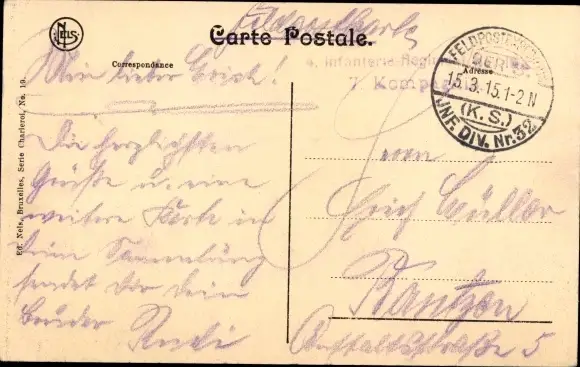 Feldpostkarte
NELS
Carte Postale.
Correspondance
Adresse
Infanterie Regi
7. Komp
FELDPOSTEXPED
15.3.15.1-2 N
(K.S.)
JNF. DIV. Nr. 32.
Mein lieber Erich!
Die herzlichsten
Grüße u. eine
weitere Karte in
Deine Sammlung
sendet Dir Dein
Bruder Rudi
Herrn
Erich Müller
Bautzen
Anstaltstraße 5
Ed. Nels, Bruxelles, Serie Charleroi, No. 19.